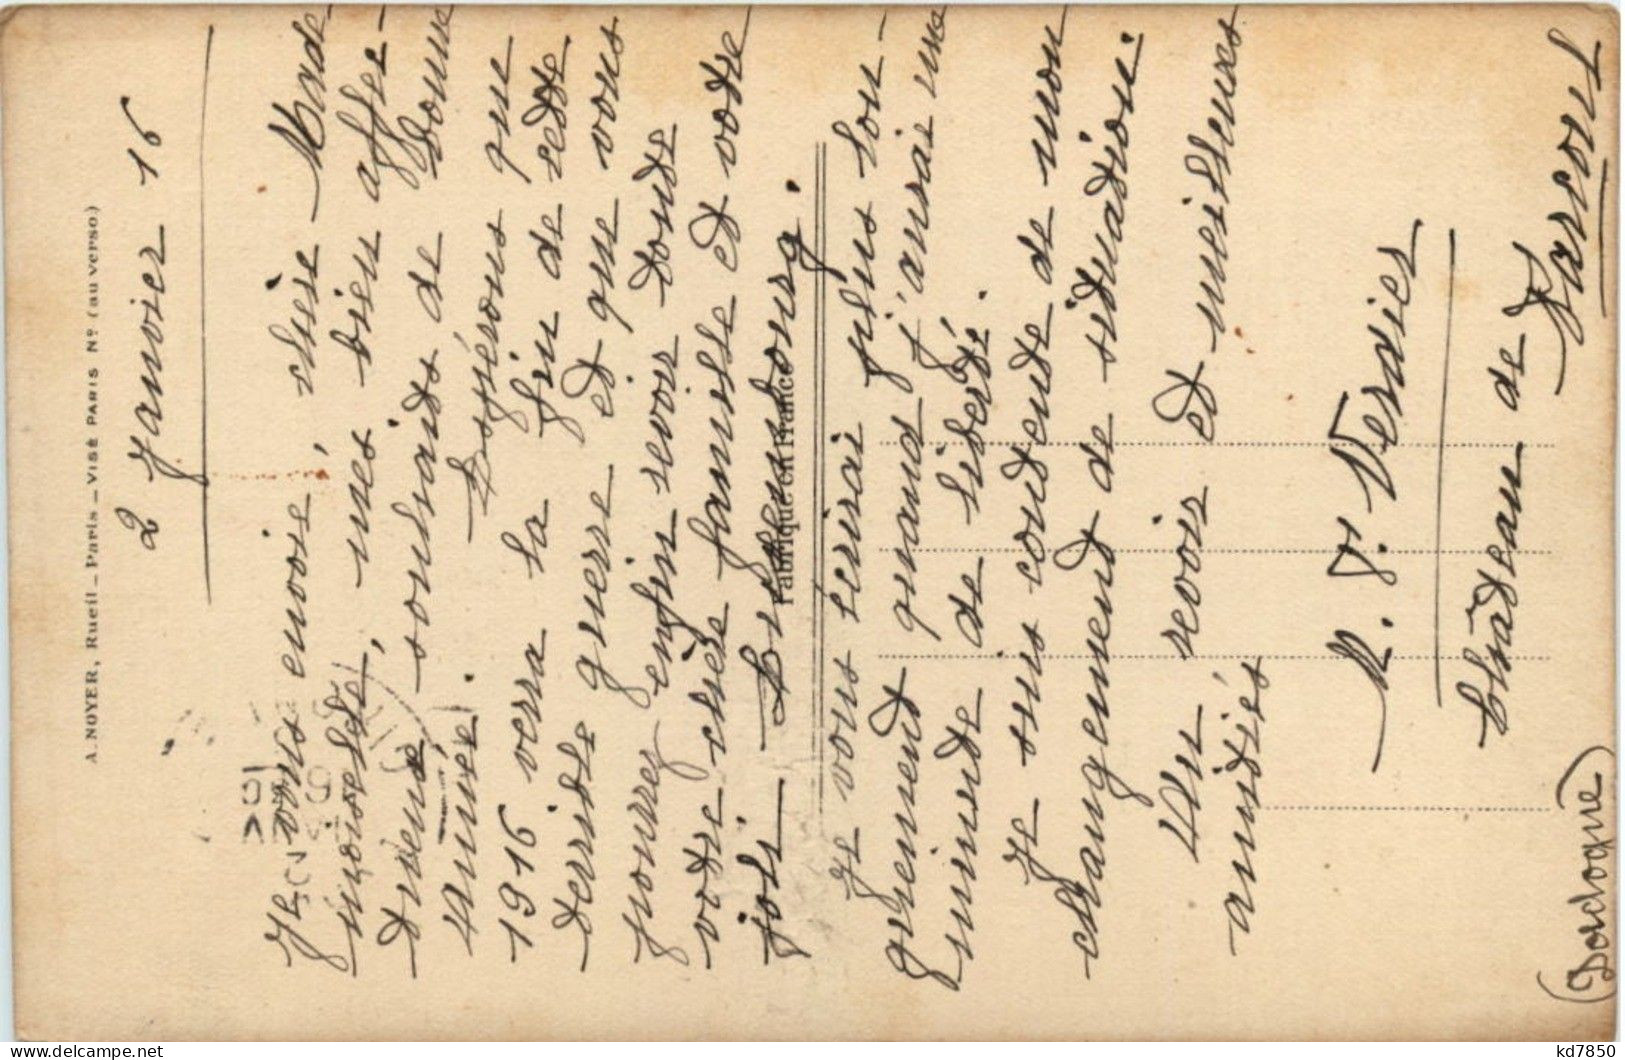 A. NOYER, Rueil - Paris - VISÉ PARIS Nº (au verso)
2 Janvier 16
Je vous envoie, chère Made-
moiselle, mes bien affec-
tueux souhaits de bonne
année.
Espérons que
1916 verra la fin de cette
terrible guerre et que vous
pourrez enfin revoir toute
votre chère famille et votre
joli Luxembourg.
Fabriqué en France
Je vous écrirai plus lon-
guement quand j'aurai une
minute de liberté.
Je suis contente de mon
changement de situation.
Au revoir et meilleures
amitiés
M. T. Verdier
Château de Farcour
(Dordogne)
kd7850